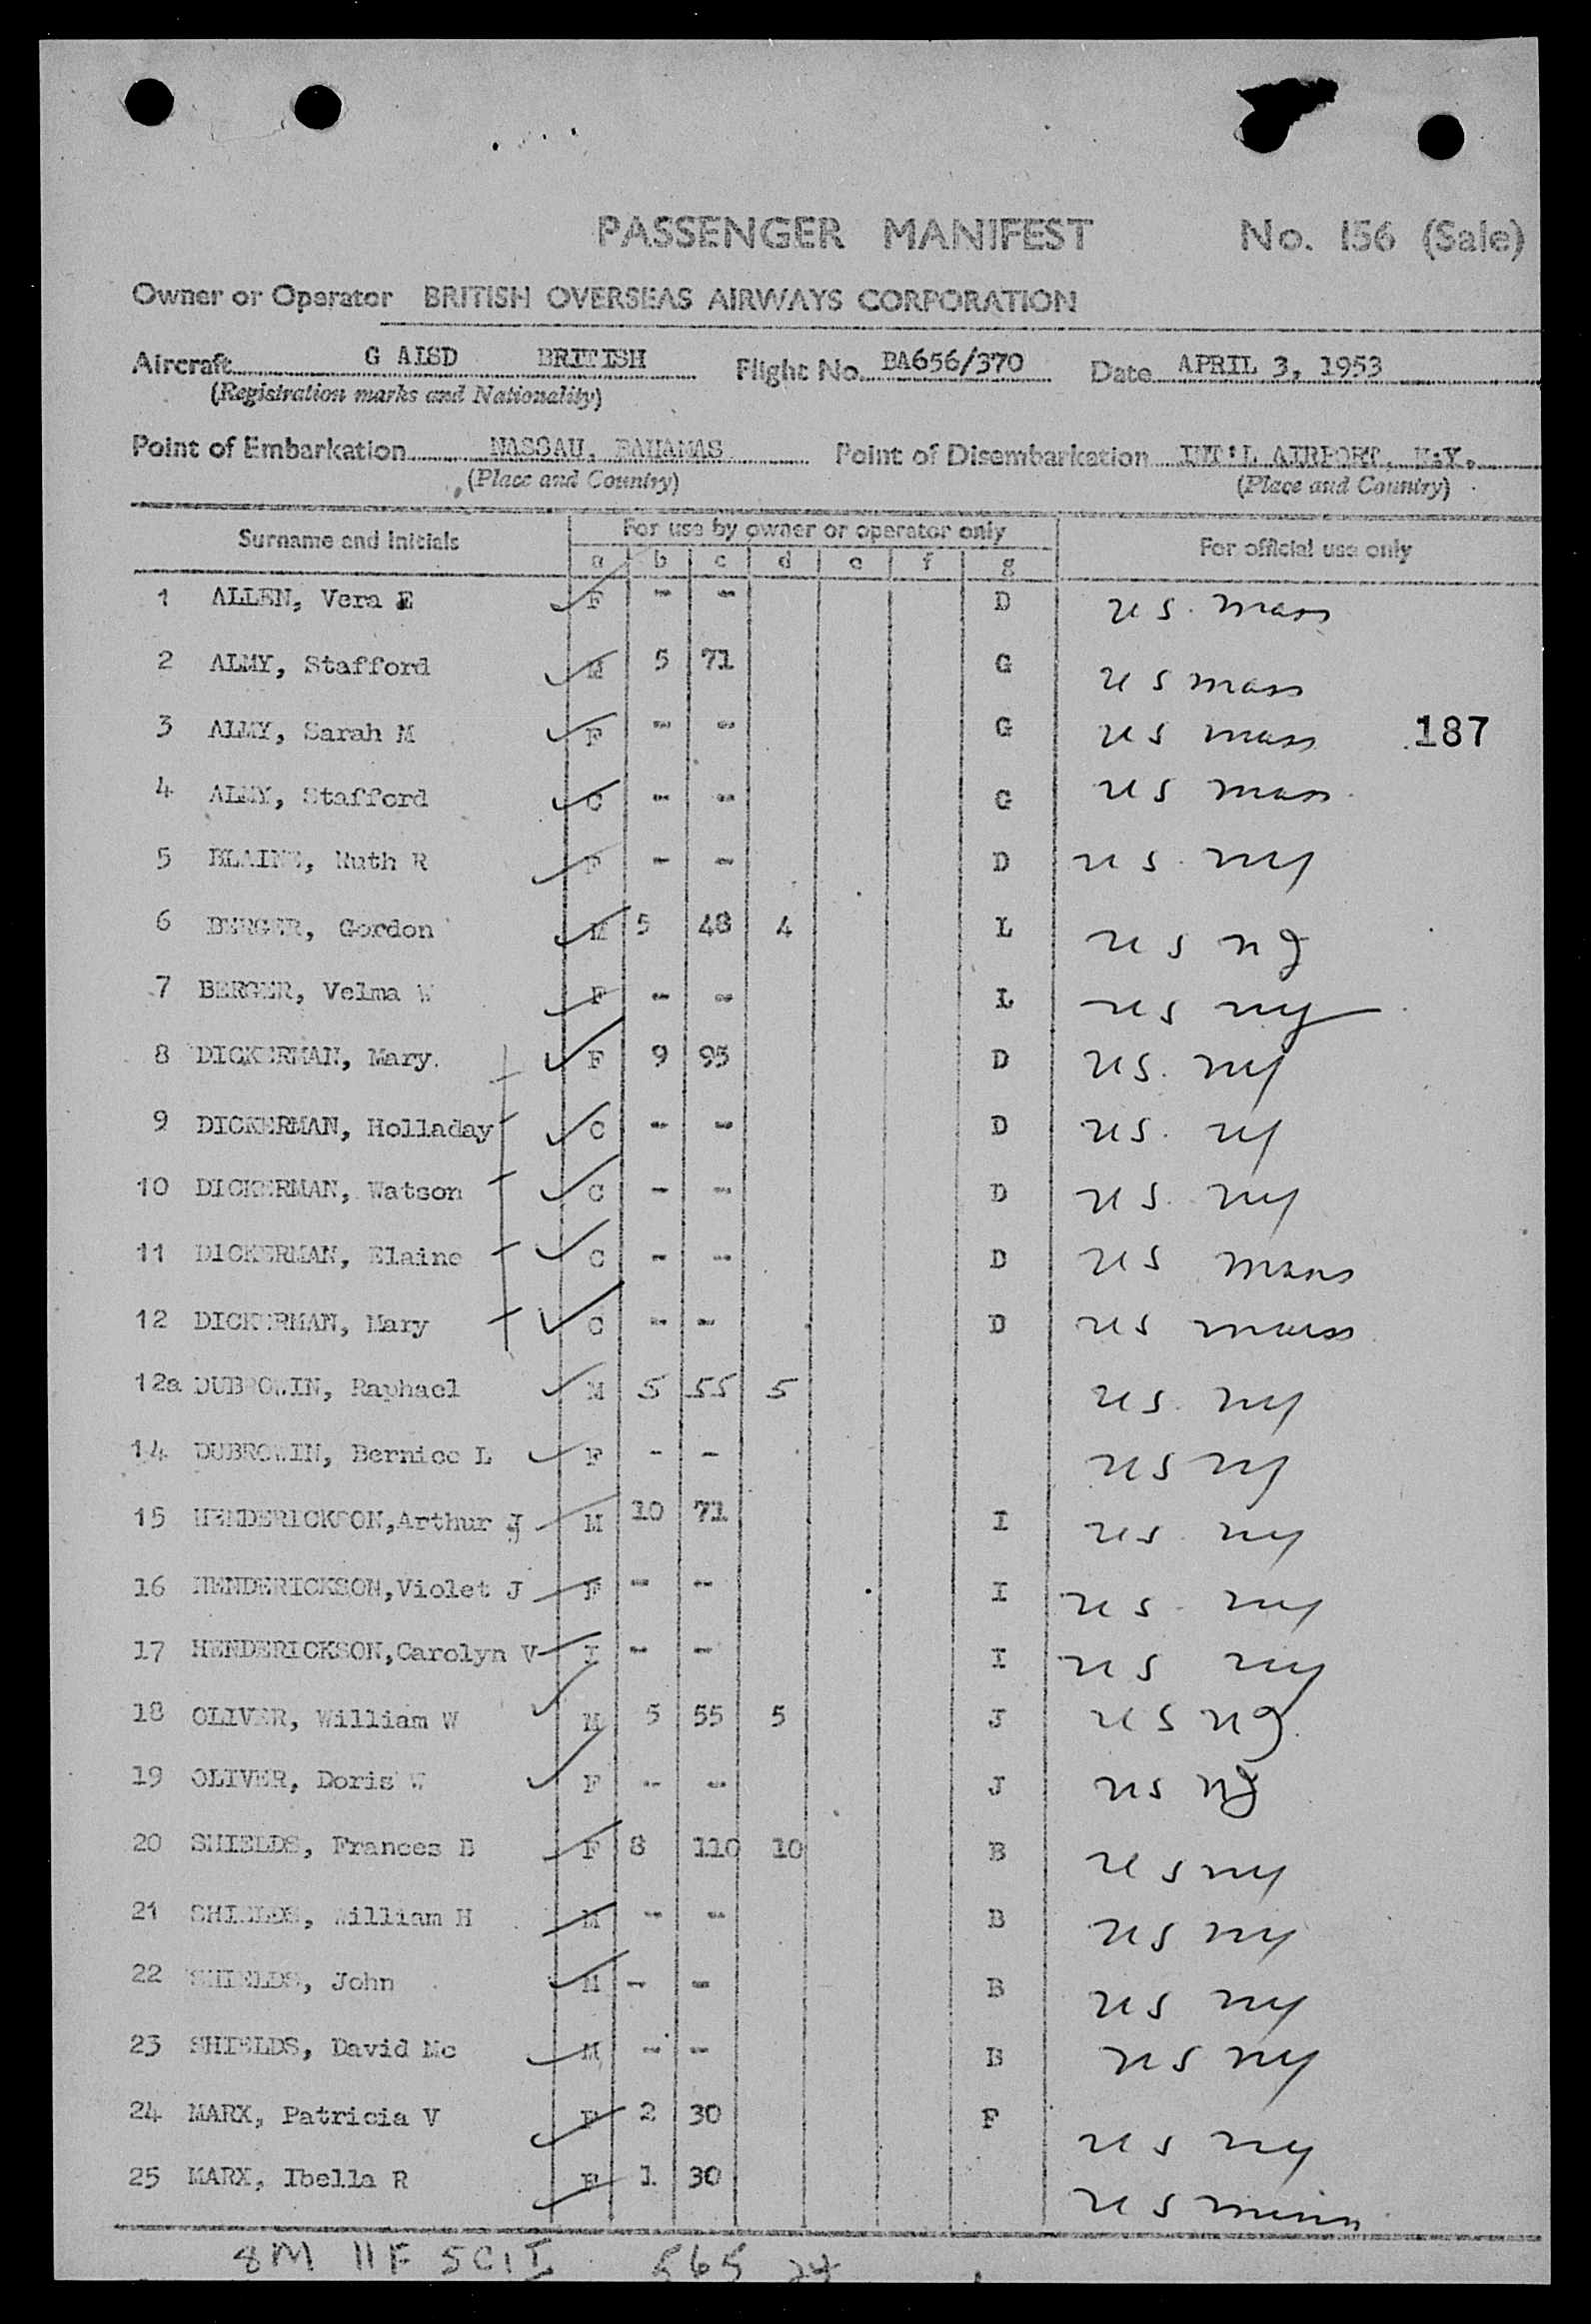 PASSENGER MANIFEST No. 156 (Sale)
Owner or Operator BRITISH OVERSEAS AIRWAYS CORPORATION
Aircraft G AISD BRITISH Flight No. BA656/370 Date APRIL 3, 1953
(Registration marks and Nationality)
Point of Embarkation NASSAU, BAHAMAS Point of Disembarkation INT'L AIRPORT, N.Y.
(Place and Country) (Place and Country)
Surname and Initials For use by owner or operator only For official use only
a b c d e f g
1 ALLEN, Vera E F - - D US. Mass
2 ALMY, Stafford M 5 71 G US Mass
3 ALMY, Sarah M F - - G US Mass 187
4 ALMY, Stafford C - - G US Mass
5 BLAINE, Ruth R F - - D US. NY
6 BERGER, Gordon M 5 48 4 L US NJ
7 BERGER, Velma W F - - L US NY
8 DICKERMAN, Mary. F 9 95 D US. NY
9 DICKERMAN, Holladay C - - D US. NY
10 DICKERMAN, Watson C - - D US. NY
11 DICKERMAN, Elaine C - - D US Mass
12 DICKERMAN, Mary C - - D US Mass
12a DUBROWIN, Raphael M 5 55 5 US. NY
14 DUBROWIN, Bernice L F - - US NY
15 HENDERICKSON,Arthur J M 10 71 I US. NY
16 HENDERICKSON,Violet J F - - I US. NY
17 HENDERICKSON,Carolyn V I - - I US NY
18 OLIVER, William W M 5 55 5 J US NJ.
19 OLIVER, Doris W F - - J US NJ
20 SHIELDS, Frances B F 8 110 10 B US NY
21 SHIELDS, William H M - - B US NY
22 SHIELDS, John M - - B US NY
23 SHIELDS, David Mc M - - B US NY
24 MARX, Patricia V F 2 30 F US NY
25 MARX, Ibella R F 1 30 US Minn
8M 11F 5C1I 565 24